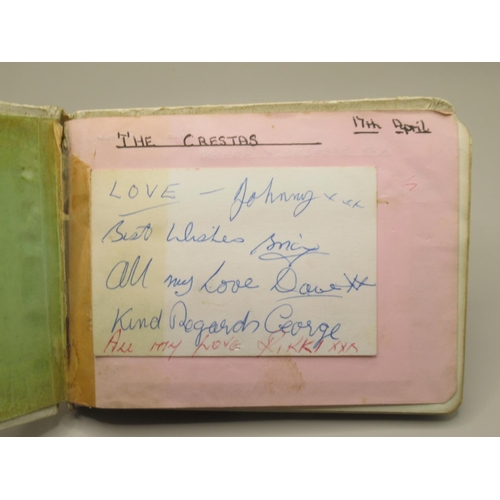 THE CRESTAS
17th April
LOVE - Johnny xxx
Best Wishes
All my Love Dave xx
Kind Regards George
All my Love xxx